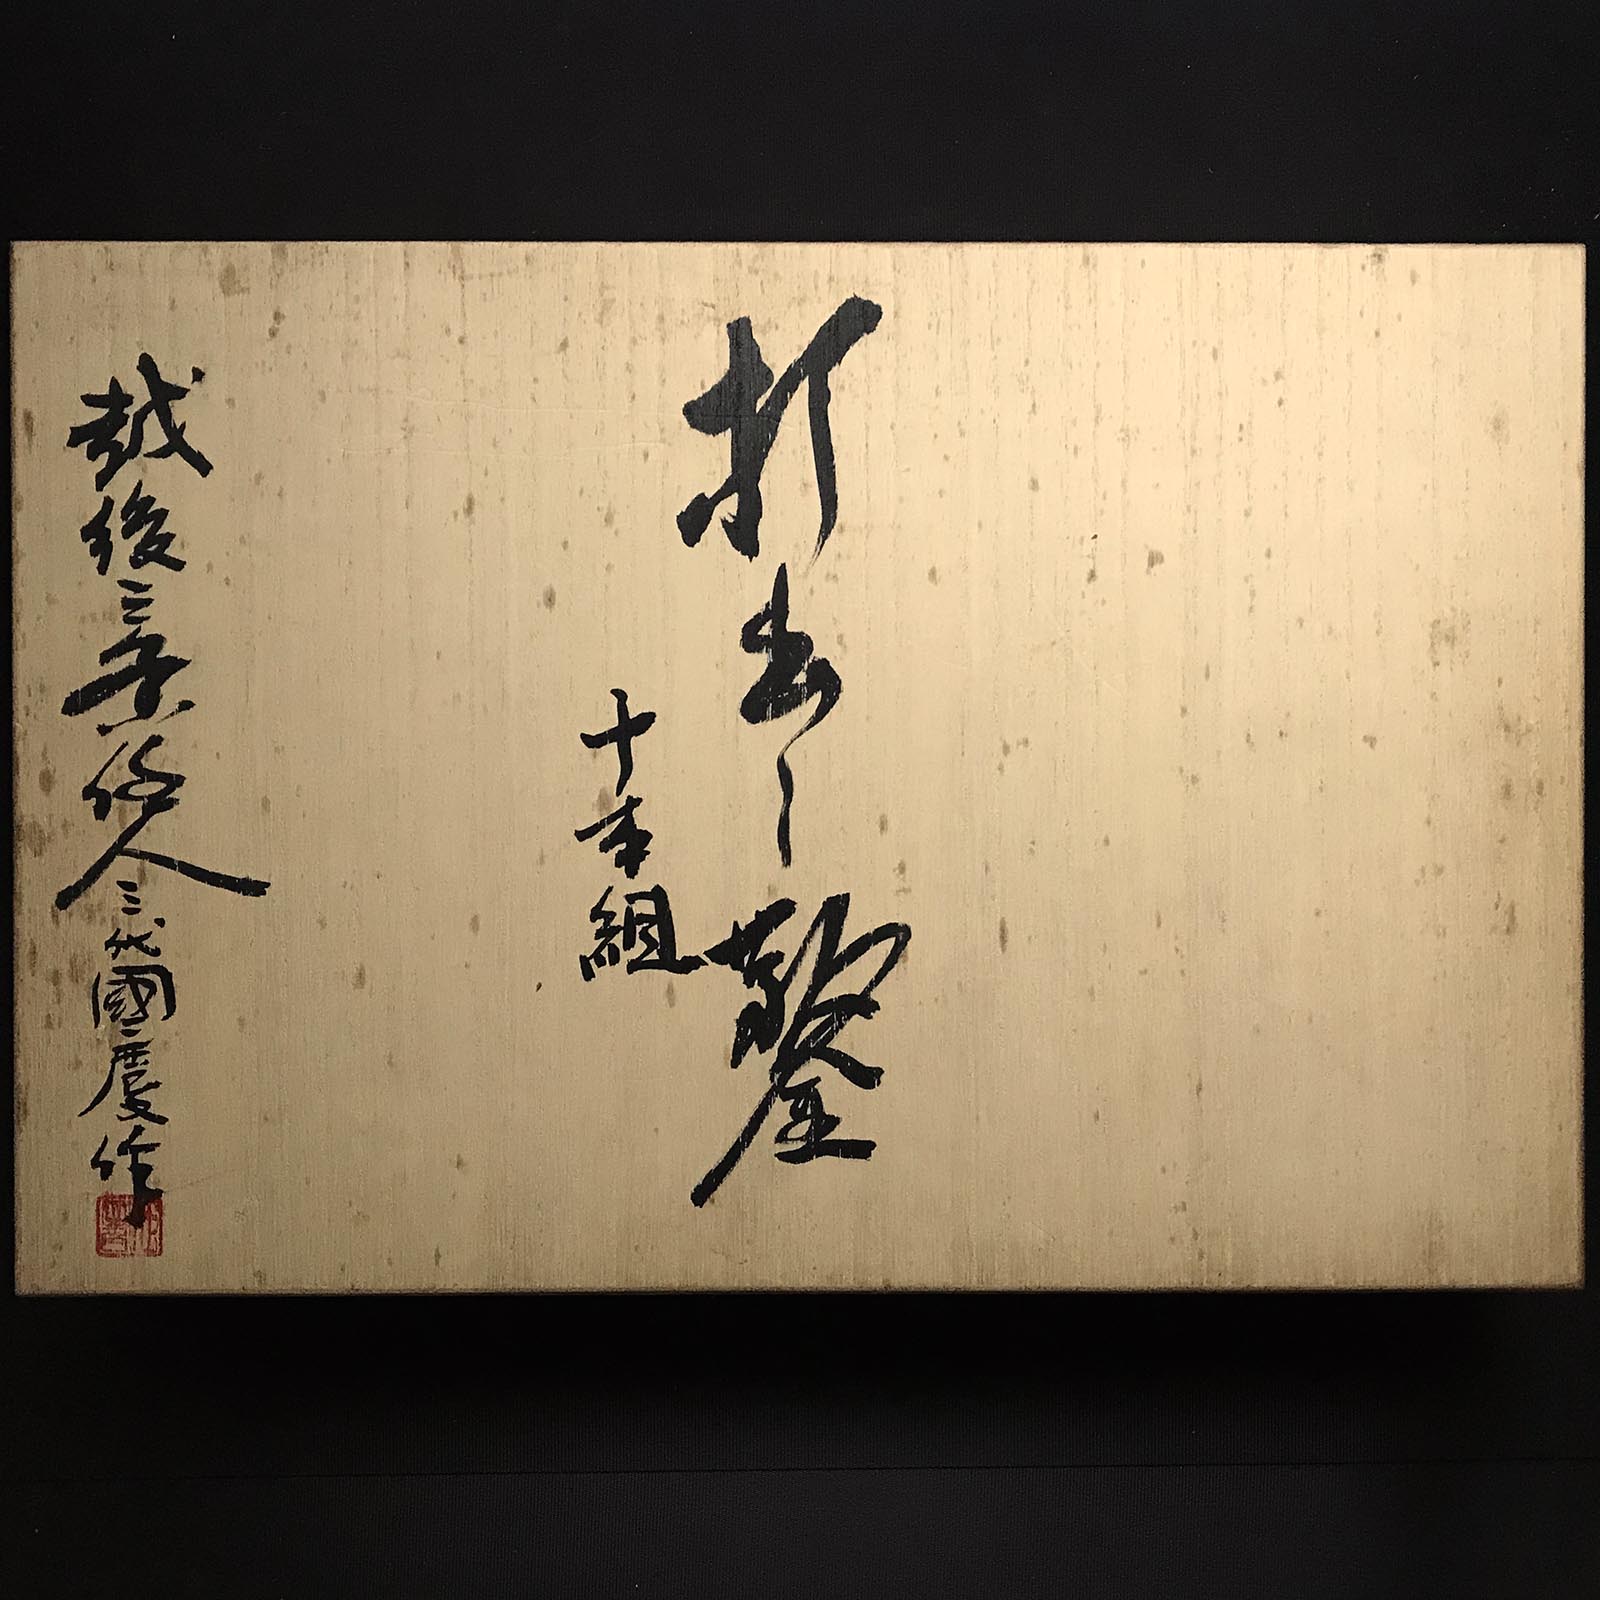 打出し鑿
十本組
越後三条住人三代國慶作